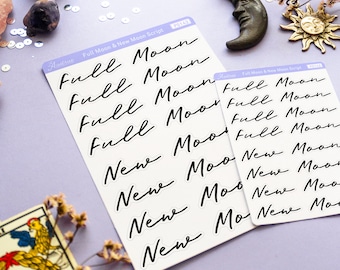 Full Moon & New Moon Script
Full Moon
Full Moon
Full Moon
Full Moon
New Moon
New Moon
New Moon
New Moon
Full Moon & New Moon Script
Full Moon
Full Moon
Full Moon
Full Moon
New Moon
New Moon
New Moon
New Moon